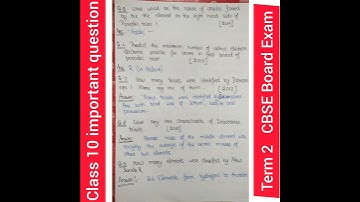 Class 10 important question
Q.5 What would be the nature of oxides formed
by the the element on the right hand side of
Periodic table ? [2019]
Ans :- Acidic -
Q.6 Predict the maximum number of valence electrons
possible for atoms in the first period of
periodic table ? [2019]
Ans 2 (in Helium)
Q.7 How many triads were identified by Dobereiner
? Name any one of them. [2012]
Answer Three triads were identified by Dobereiner
One with triad was of lithium, sodium and
potassium.
Q.8 Give any one characteristic of Dobereiner's
triads [2015]
Answer Atomic mass of the middle element was
roughly the average of the atomic masses of
other two elements.
Q.9 How many elements were classified by New
lands ?
Answer :- 56 Elements form hydrogen to thorium
Term 2 CBSE Board Exam